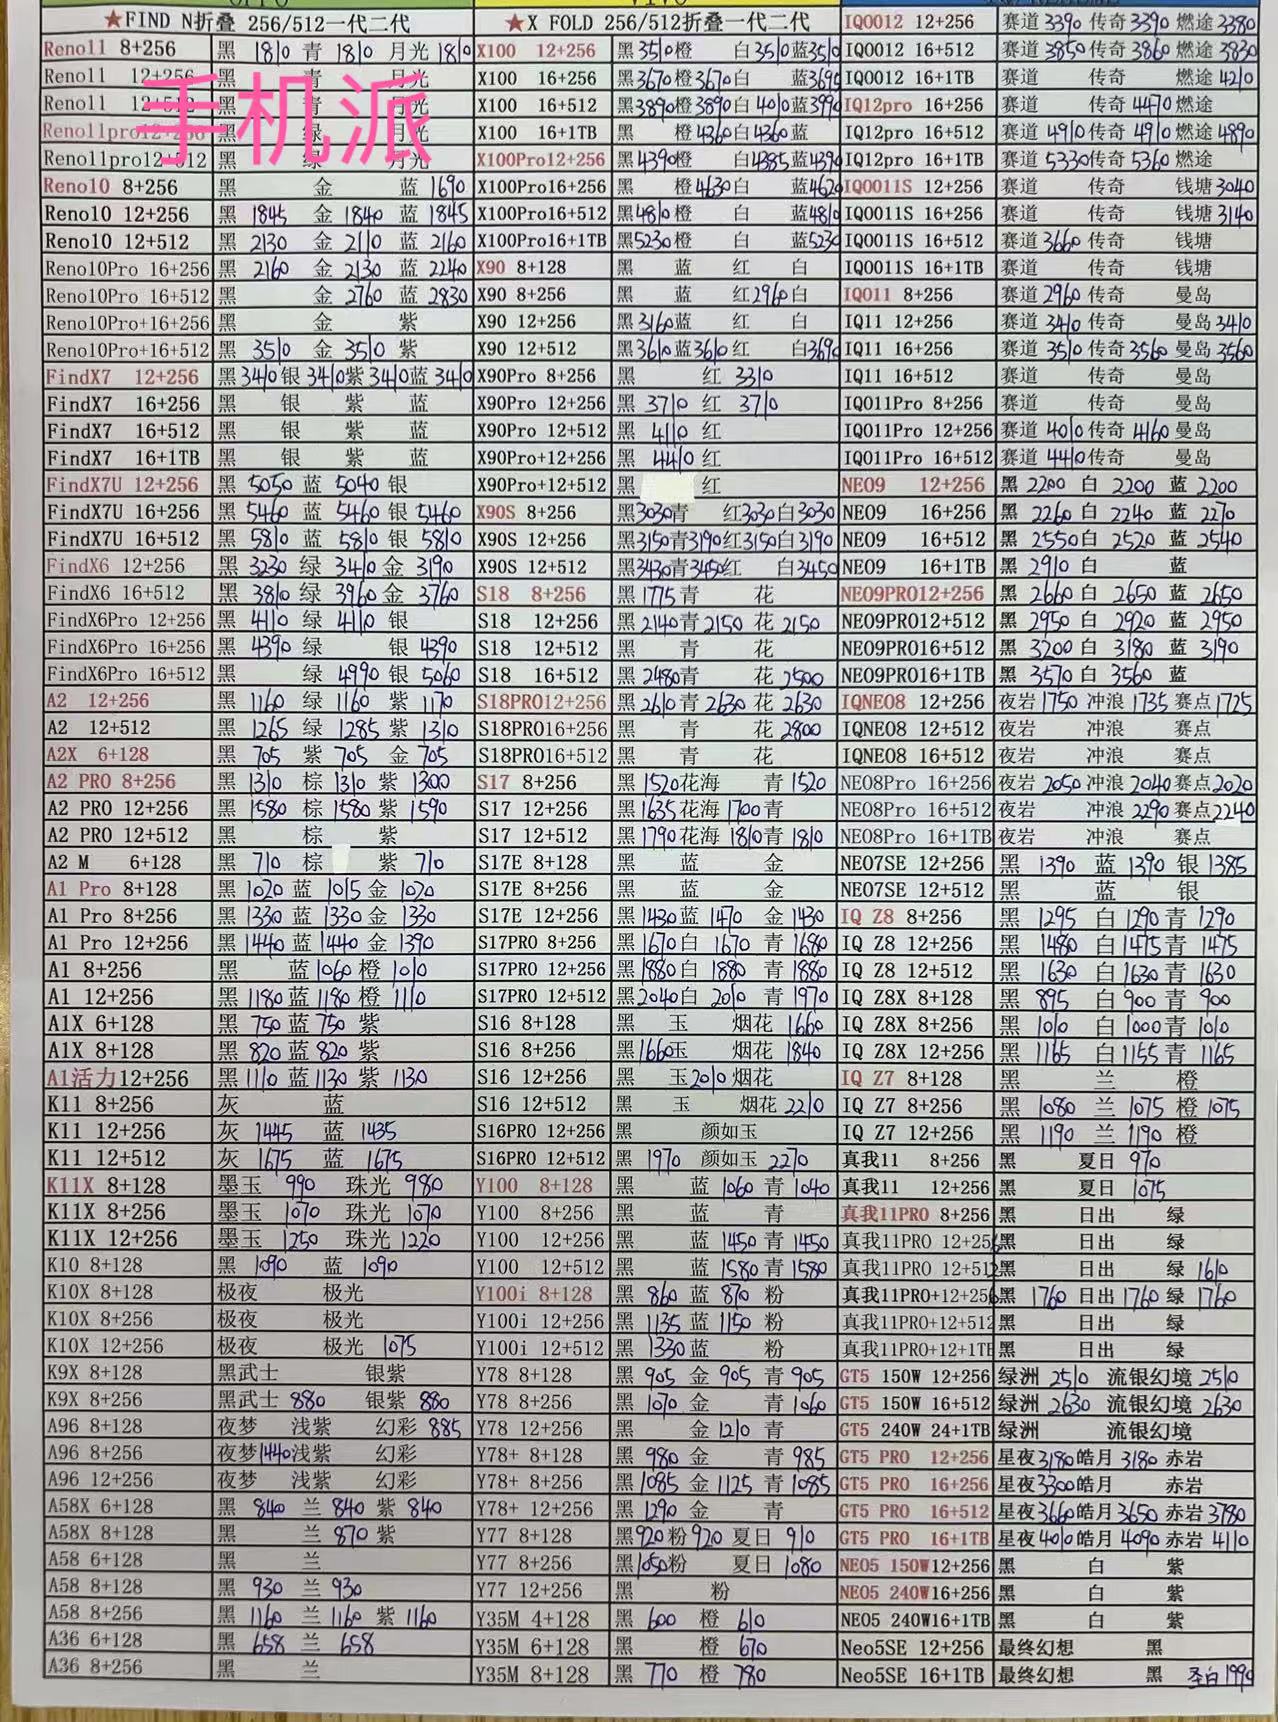 OPPO
VIVO
★FIND N折叠 256/512一代二代
Reno11 8+256 黑 1810 青 1810 月光 1810
Reno11 12+256 黑 青 月光
Reno11 12+512 黑 青 月光
Reno11pro12+256 黑 绿 月光
Reno11pro12+512 黑 绿 月光
手机派
Reno10 8+256 黑 金 蓝 1690
Reno10 12+256 黑 1845 金 1840 蓝 1845
Reno10 12+512 黑 2130 金 2110 蓝 2160
Reno10Pro 16+256 黑 2160 金 2130 蓝 2240
Reno10Pro 16+512 黑 金 2760 蓝 2830
Reno10Pro+16+256 黑 金 紫
Reno10Pro+16+512 黑 3510 金 3510 紫
FindX7 12+256 黑 3410 银 3410 紫 3410 蓝 3410
FindX7 16+256 黑 银 紫 蓝
FindX7 16+512 黑 银 紫 蓝
FindX7 16+1TB 黑 银 紫 蓝
FindX7U 12+256 黑 5050 蓝 5040 银
FindX7U 16+256 黑 5460 蓝 5460 银 5460
FindX7U 16+512 黑 5810 蓝 5810 银 5810
FindX6 12+256 黑 3230 绿 3410 金 3190
FindX6 16+512 黑 3810 绿 3960 金 3760
FindX6Pro 12+256 黑 4110 绿 4110 银
FindX6Pro 16+256 黑 4390 绿 银 4390
FindX6Pro 16+512 黑 绿 4990 银 5060
A2 12+256 黑 1160 绿 1160 紫 1170
A2 12+512 黑 1265 绿 1285 紫 1310
A2X 6+128 黑 705 紫 705 金 705
A2 PRO 8+256 黑 1310 棕 1310 紫 1300
A2 PRO 12+256 黑 1580 棕 1580 紫 1590
A2 PRO 12+512 黑 棕 紫
A2 M 6+128 黑 710 棕 紫 710
A1 Pro 8+128 黑 1020 蓝 1015 金 1020
A1 Pro 8+256 黑 1330 蓝 1330 金 1330
A1 Pro 12+256 黑 1440 蓝 1440 金 1390
A1 8+256 黑 蓝 1060 橙 1010
A1 12+256 黑 1180 蓝 1180 橙 1110
A1X 6+128 黑 750 蓝 750 紫
A1X 8+128 黑 820 蓝 820 紫
A1活力12+256 黑 1110 蓝 1130 紫 1130
K11 8+256 灰 蓝
K11 12+256 灰 1445 蓝 1435
K11 12+512 灰 1675 蓝 1675
K11X 8+128 墨玉 990 珠光 980
K11X 8+256 墨玉 1070 珠光 1070
K11X 12+256 墨玉 1250 珠光 1220
K10 8+128 黑 1090 蓝 1090
K10X 8+128 极夜 极光
K10X 8+256 极夜 极光
K10X 12+256 极夜 极光 1075
K9X 8+128 黑武士 银紫
K9X 8+256 黑武士 880 银紫 880
A96 8+128 夜梦 浅紫 幻彩 885
A96 8+256 夜梦 1440 浅紫 幻彩
A96 12+256 夜梦 浅紫 幻彩
A58X 6+128 黑 840 兰 840 紫 840
A58X 8+128 黑 兰 870 紫
A58 6+128 黑 兰
A58 8+128 黑 930 兰 930
A58 8+256 黑 1160 兰 1160 紫 1160
A36 6+128 黑 658 兰 658
A36 8+256 黑 兰
★X FOLD 256/512折叠一代二代
X100 12+256 黑 3510 橙 白 3510 蓝 3510
X100 16+256 黑 3670 橙 3670 白 蓝 3695
X100 16+512 黑 3890 橙 3890 白 4010 蓝 3990
X100 16+1TB 黑 橙 4360 白 4360 蓝
X100Pro12+256 黑 4390 橙 白 4385 蓝 4390
X100Pro16+256 黑 橙 4630 白 蓝 4620
X100Pro16+512 黑 4810 橙 白 蓝 4810
X100Pro16+1TB 黑 5230 橙 白 蓝 5230
X90 8+128 黑 蓝 红 白
X90 8+256 黑 蓝 红 2960 白
X90 12+256 黑 3160 蓝 红 白
X90 12+512 黑 3610 蓝 3610 红 白 3690
X90Pro 8+256 黑 红 3310
X90Pro 12+256 黑 3710 红 3710
X90Pro 12+512 黑 4110 红
X90Pro+12+256 黑 4410 红
X90Pro+12+512 黑 红
X90S 8+256 黑 3030 青 红 3030 白 3030
X90S 12+256 黑 3150 青 3190 红 3150 白 3190
X90S 12+512 黑 3430 青 3450 红 白 3450
S18 8+256 黑 1775 青 花
S18 12+256 黑 2140 青 2150 花 2150
S18 12+512 黑 青 花
S18 16+512 黑 2480 青 花 2500
S18PRO12+256 黑 2610 青 2630 花 2630
S18PRO16+256 黑 青 花 2800
S18PRO16+512 黑 青 花
S17 8+256 黑 1520 花海 青 1520
S17 12+256 黑 1635 花海 1700 青
S17 12+512 黑 1790 花海 1810 青 1810
S17E 8+128 黑 蓝 金
S17E 8+256 黑 蓝 金
S17E 12+256 黑 1430 蓝 1470 金 1430
S17PRO 8+256 黑 1670 白 1670 青 1680
S17PRO 12+256 黑 1880 白 1880 青 1880
S17PRO 12+512 黑 2040 白 2010 青 1970
S16 8+128 黑 玉 烟花 1660
S16 8+256 黑 1660 玉 烟花 1840
S16 12+256 黑 玉 2010 烟花
S16 12+512 黑 玉 烟花 2210
S16PRO 12+256 黑 颜如玉
S16PRO 12+512 黑 1970 颜如玉 2270
Y100 8+128 黑 蓝 1060 青 1040
Y100 8+256 黑 蓝 青
Y100 12+256 黑 蓝 1450 青 1450
Y100 12+512 黑 蓝 1580 青 1580
Y100i 8+128 黑 860 蓝 870 粉
Y100i 12+256 黑 1135 蓝 1150 粉
Y100i 12+512 黑 1330 蓝 粉
Y78 8+128 黑 905 金 905 青 905
Y78 8+256 黑 1070 金 青 1060
Y78 12+256 黑 金 1210 青
Y78+ 8+128 黑 980 金 青 985
Y78+ 8+256 黑 1085 金 1125 青 1085
Y78+ 12+256 黑 1290 金 青
Y77 8+128 黑 920 粉 920 夏日 910
Y77 8+256 黑 1050 粉 夏日 1080
Y77 12+256 黑 粉
Y35M 4+128 黑 600 橙 610
Y35M 6+128 黑 橙 670
Y35M 8+128 黑 770 橙 780
IQ0012 12+256 赛道 3390 传奇 3390 燃途 2380
IQ0012 16+512 赛道 3850 传奇 3860 燃途 3830
IQ0012 16+1TB 赛道 传奇 燃途 4210
IQ12pro 16+256 赛道 传奇 4470 燃途
IQ12pro 16+512 赛道 4910 传奇 4910 燃途 4890
IQ12pro 16+1TB 赛道 5330 传奇 5360 燃途
IQ0011S 12+256 赛道 传奇 钱塘 3040
IQ0011S 16+256 赛道 传奇 钱塘 3140
IQ0011S 16+512 赛道 3660 传奇 钱塘
IQ0011S 16+1TB 赛道 传奇 钱塘
IQ011 8+256 赛道 2960 传奇 曼岛
IQ11 12+256 赛道 3410 传奇 曼岛 3410
IQ11 16+256 赛道 3510 传奇 3560 曼岛 3560
IQ11 16+512 赛道 传奇 曼岛
IQ011Pro 8+256 赛道 传奇 曼岛
IQ011Pro 12+256 赛道 4010 传奇 4160 曼岛
IQ011Pro 16+512 赛道 4410 传奇 曼岛
NEO9 12+256 黑 2200 白 2200 蓝 2200
NEO9 16+256 黑 2260 白 2240 蓝 2270
NEO9 16+512 黑 2550 白 2520 蓝 2540
NEO9 16+1TB 黑 2910 白 蓝
NEO9PRO12+256 黑 2660 白 2650 蓝 2650
NEO9PRO12+512 黑 2950 白 2920 蓝 2950
NEO9PRO16+512 黑 3200 白 3180 蓝 3190
NEO9PRO16+1TB 黑 3570 白 3560 蓝
IQNEO8 12+256 夜岩 1750 冲浪 1735 赛点 1725
IQNEO8 12+512 夜岩 冲浪 赛点
IQNEO8 16+512 夜岩 冲浪 赛点
NEO8Pro 16+256 夜岩 2050 冲浪 2040 赛点 2020
NEO8Pro 16+512 夜岩 冲浪 2290 赛点 2240
NEO8Pro 16+1TB 夜岩 冲浪 赛点
NEO7SE 12+256 黑 1390 蓝 1390 银 1385
NEO7SE 12+512 黑 蓝 银
IQ Z8 8+256 黑 1295 白 1290 青 1290
IQ Z8 12+256 黑 1480 白 1475 青 1475
IQ Z8 12+512 黑 1630 白 1630 青 1630
IQ Z8X 8+128 黑 895 白 900 青 900
IQ Z8X 8+256 黑 1010 白 1000 青 1010
IQ Z8X 12+256 黑 1165 白 1155 青 1165
IQ Z7 8+128 黑 兰 橙
IQ Z7 8+256 黑 1080 兰 1075 橙 1075
IQ Z7 12+256 黑 1190 兰 1190 橙
真我11 8+256 黑 夏日 970
真我11 12+256 黑 夏日 1075
真我11PRO 8+256 黑 日出 绿
真我11PRO 12+256 黑 日出 绿
真我11PRO 12+512 黑 日出 绿 1610
真我11PRO+12+256 黑 1760 日出 1760 绿 1760
真我11PRO+12+512 黑 日出 绿
真我11PRO+12+1TB 黑 日出 绿
GT5 150W 12+256 绿洲 2510 流银幻境 2510
GT5 150W 16+512 绿洲 2630 流银幻境 2630
GT5 240W 24+1TB 绿洲 流银幻境
GT5 PRO 12+256 星夜 3180 皓月 3180 赤岩
GT5 PRO 16+256 星夜 3300 皓月 赤岩
GT5 PRO 16+512 星夜 3660 皓月 3650 赤岩 3780
GT5 PRO 16+1TB 星夜 4010 皓月 4090 赤岩 4110
NEO5 150W12+256 黑 白 紫
NEO5 240W16+256 黑 白 紫
NEO5 240W16+1TB 黑 白 紫
Neo5SE 12+256 最终幻想 黑
Neo5SE 16+1TB 最终幻想 黑 圣白 1990